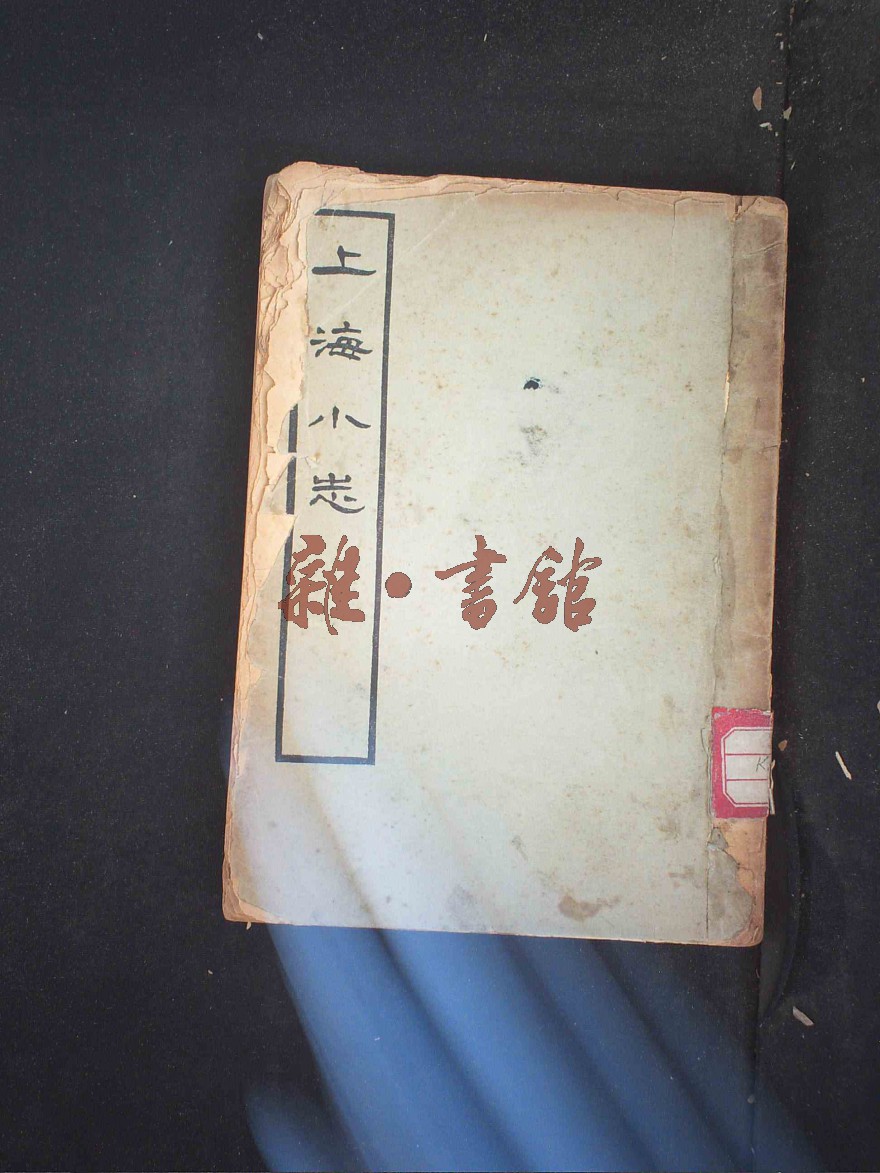 上海小志
雜·書館
K